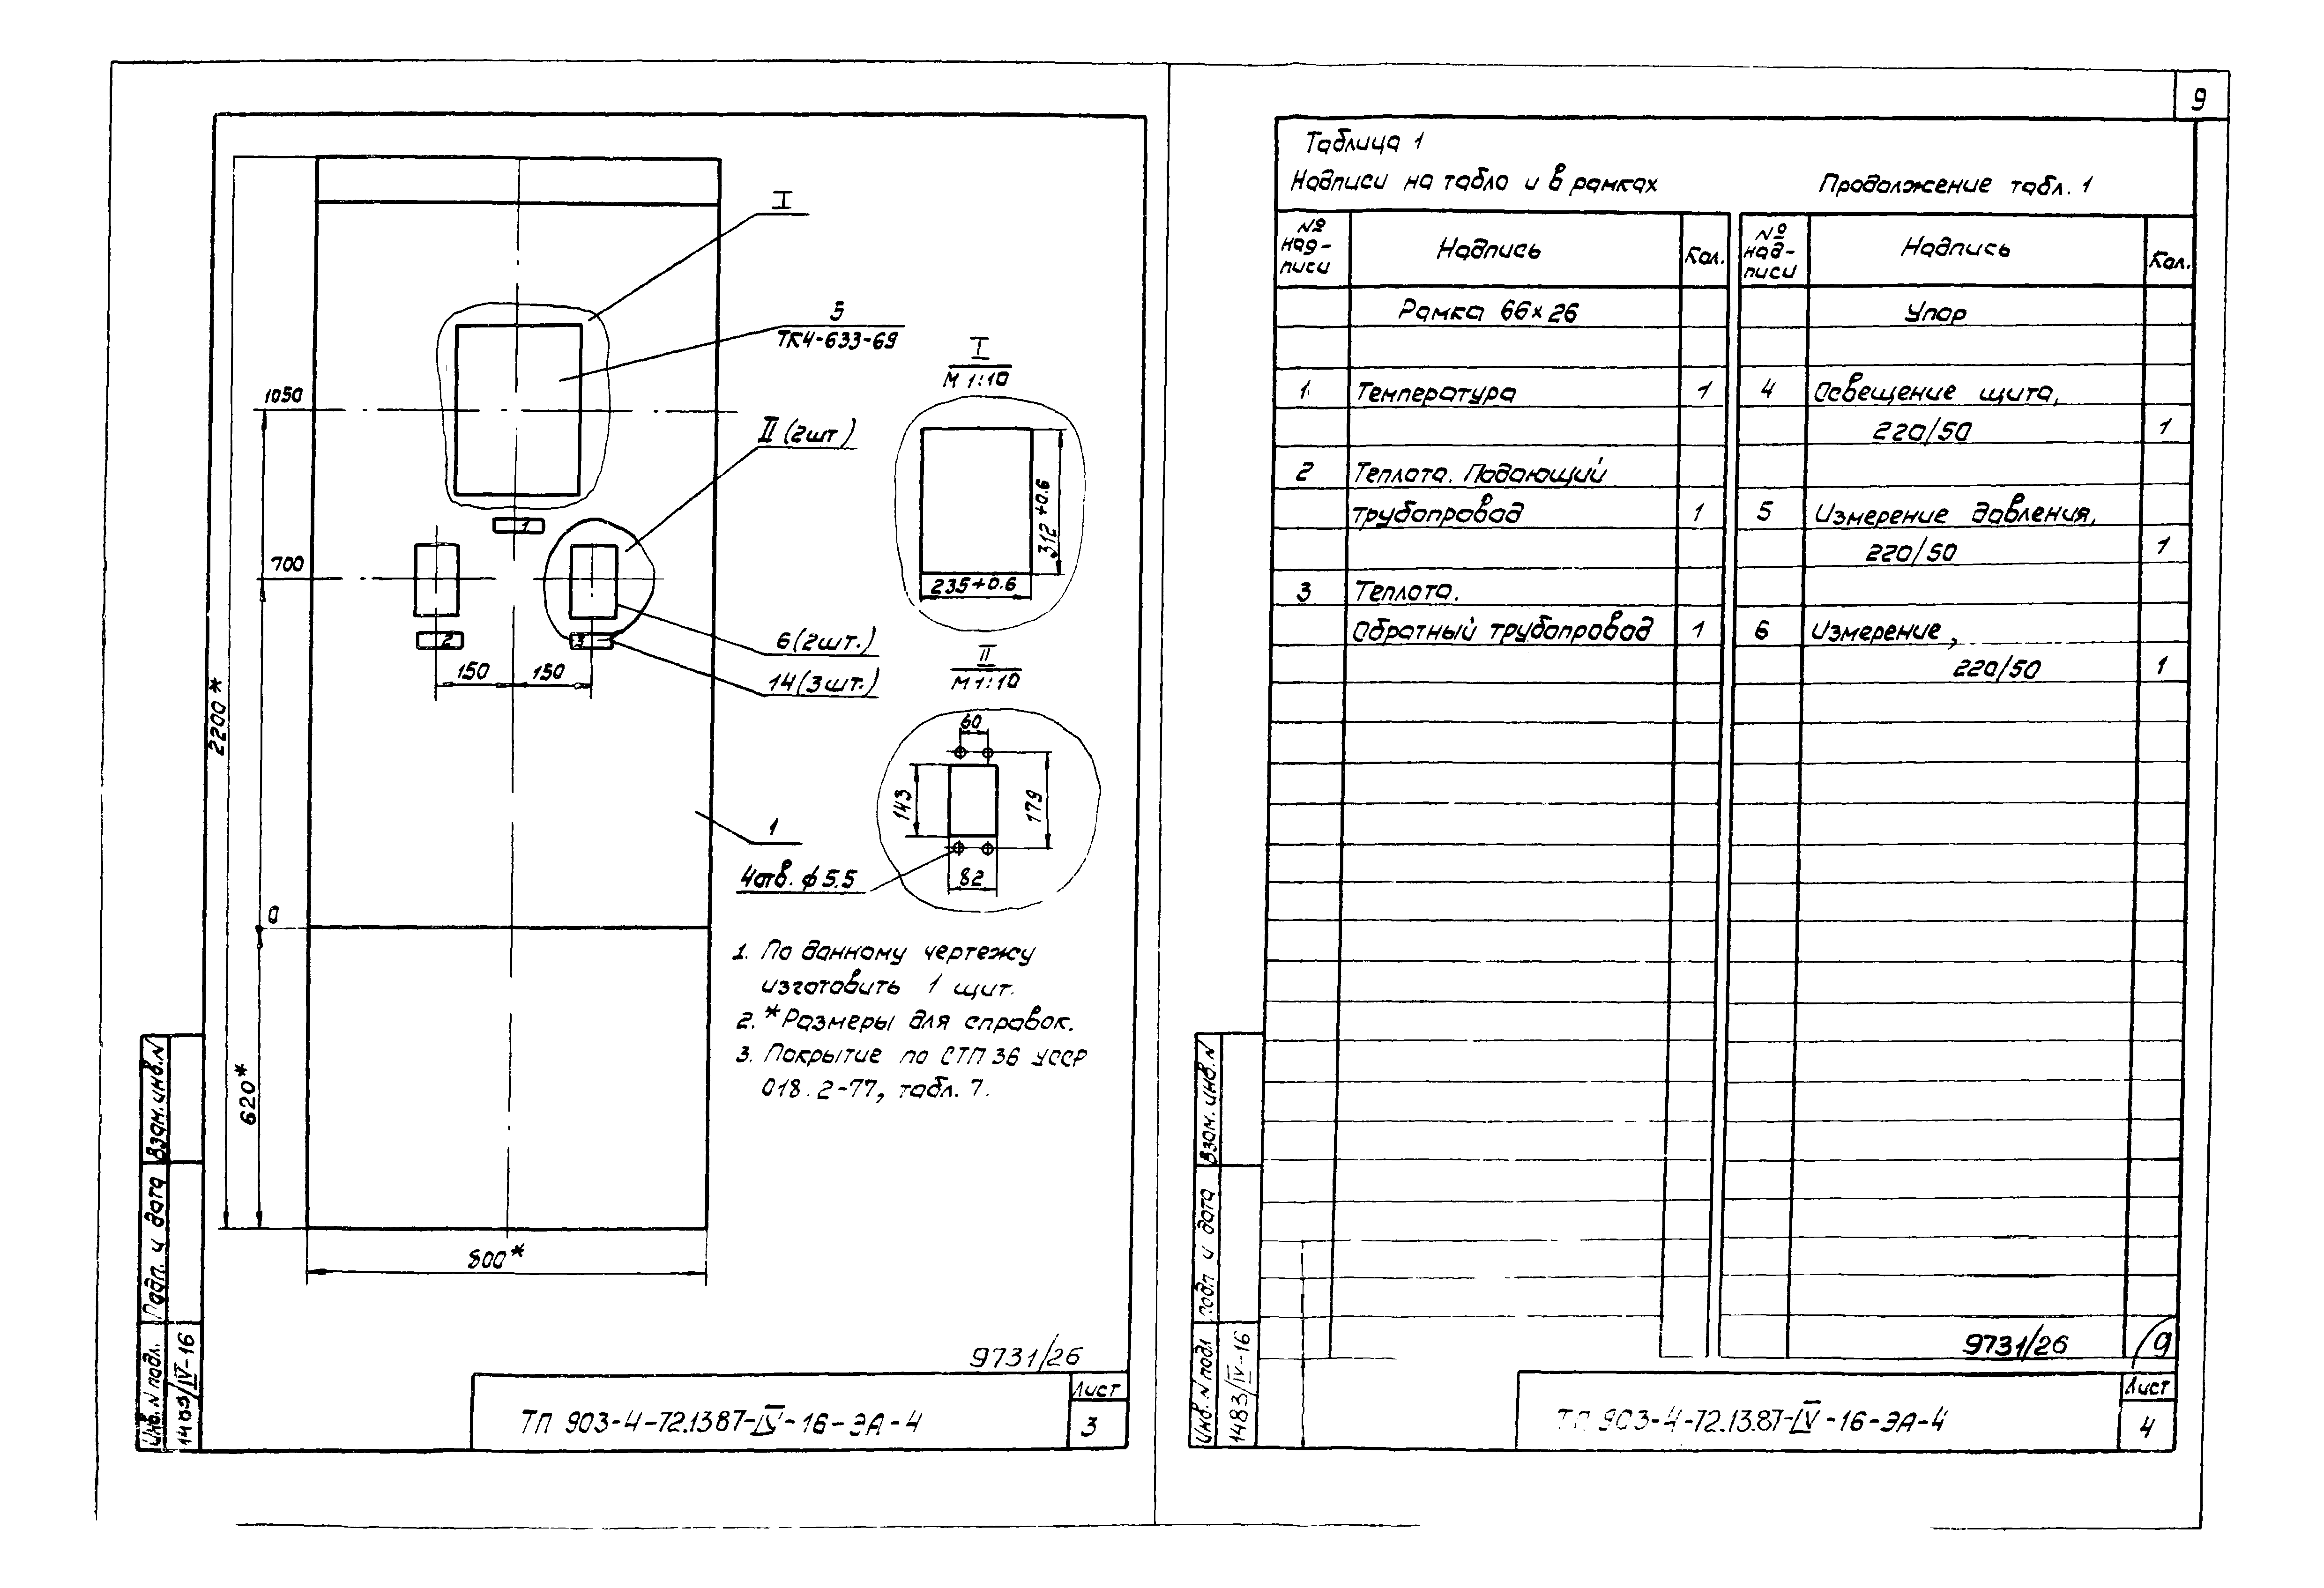 I
5
ТК4-633-69
1050
II (2шт)
I
М 1:10
312+0.6
235+0.6
700
1
2
3
6(2шт.)
14(3шт.)
150
150
2200*
II
М 1:10
60
143
179
82
1
4отв. ф5.5
0
620*
800*
1. По данному чертежу
изготовить 1 щит.
2. *Размеры для справок.
3. Покрытие по СТП 36 УССР
018.2-77, табл. 7.
9731/26
ТП 903-4-72.13.87-IV-16-ЭА-4
Лист
3
Взам.инв.N
Подп. и дата
Инв.N подл.
1483/IV-16
9
Таблица 1
Надписи на табло и в рамках
Продолжение табл. 1
№ над-писи
Надпись
Кол.
№ над-писи
Надпись
Кол.
Рамка 66×26
Упор
1 Температура 1
4 Освещение щита,
220/50 1
2 Теплота. Подающий
трубопровод 1
5 Измерение давления,
220/50 1
3 Теплота.
Обратный трубопровод 1
6 Измерение,
220/50 1
9731/26
9
ТП 903-4-72.13.87-IV-16-ЭА-4
Лист
4
Взам. инв.N
Подп и дата
Инв.N подл
1483/IV-16